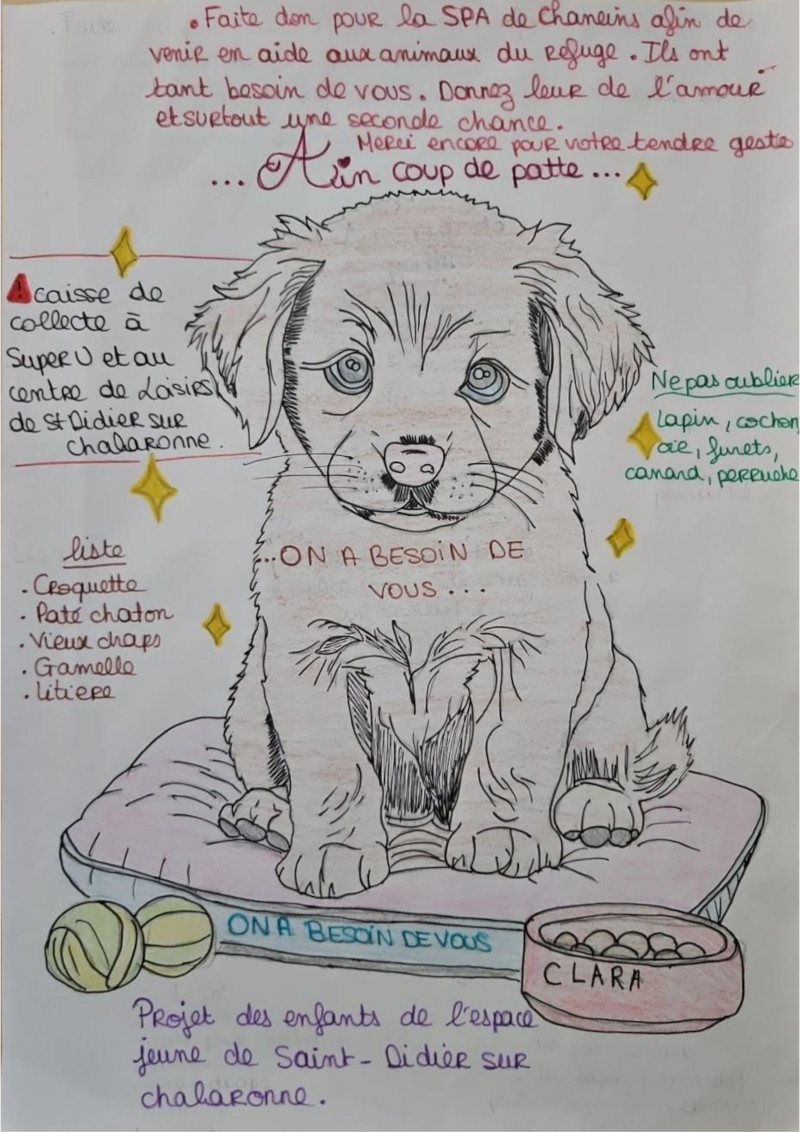 . Faite don pour la SPA de Chaneins afin de
venir en aide aux animaux du refuge. Ils ont
tant besoin de vous. Donnez leur de l'amour
et surtout une seconde chance.
Merci encore pour votre tendre geste
... A un coup de patte ...
! caisse de
collecte à
Super U et au
centre de Loisirs
de St Didier sur
chalaronne.
Ne pas oublier
Lapin, cochon,
oie, furets,
canard, perruche
liste
. Croquette
. Paté chaton
. Vieux draps
. Gamelle
. litiere
...ON A BESOIN DE
VOUS...
ON A BESOIN DE VOUS
CLARA
Projet des enfants de l'espace
jeune de Saint-Didier sur
chalaronne.